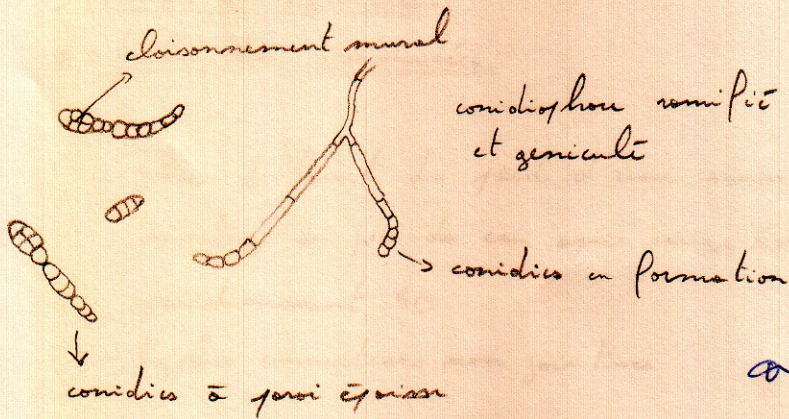 cloisonnement mural
conidiophore ramifié
et géniculé
conidies en formation
conidies à paroi épaisse